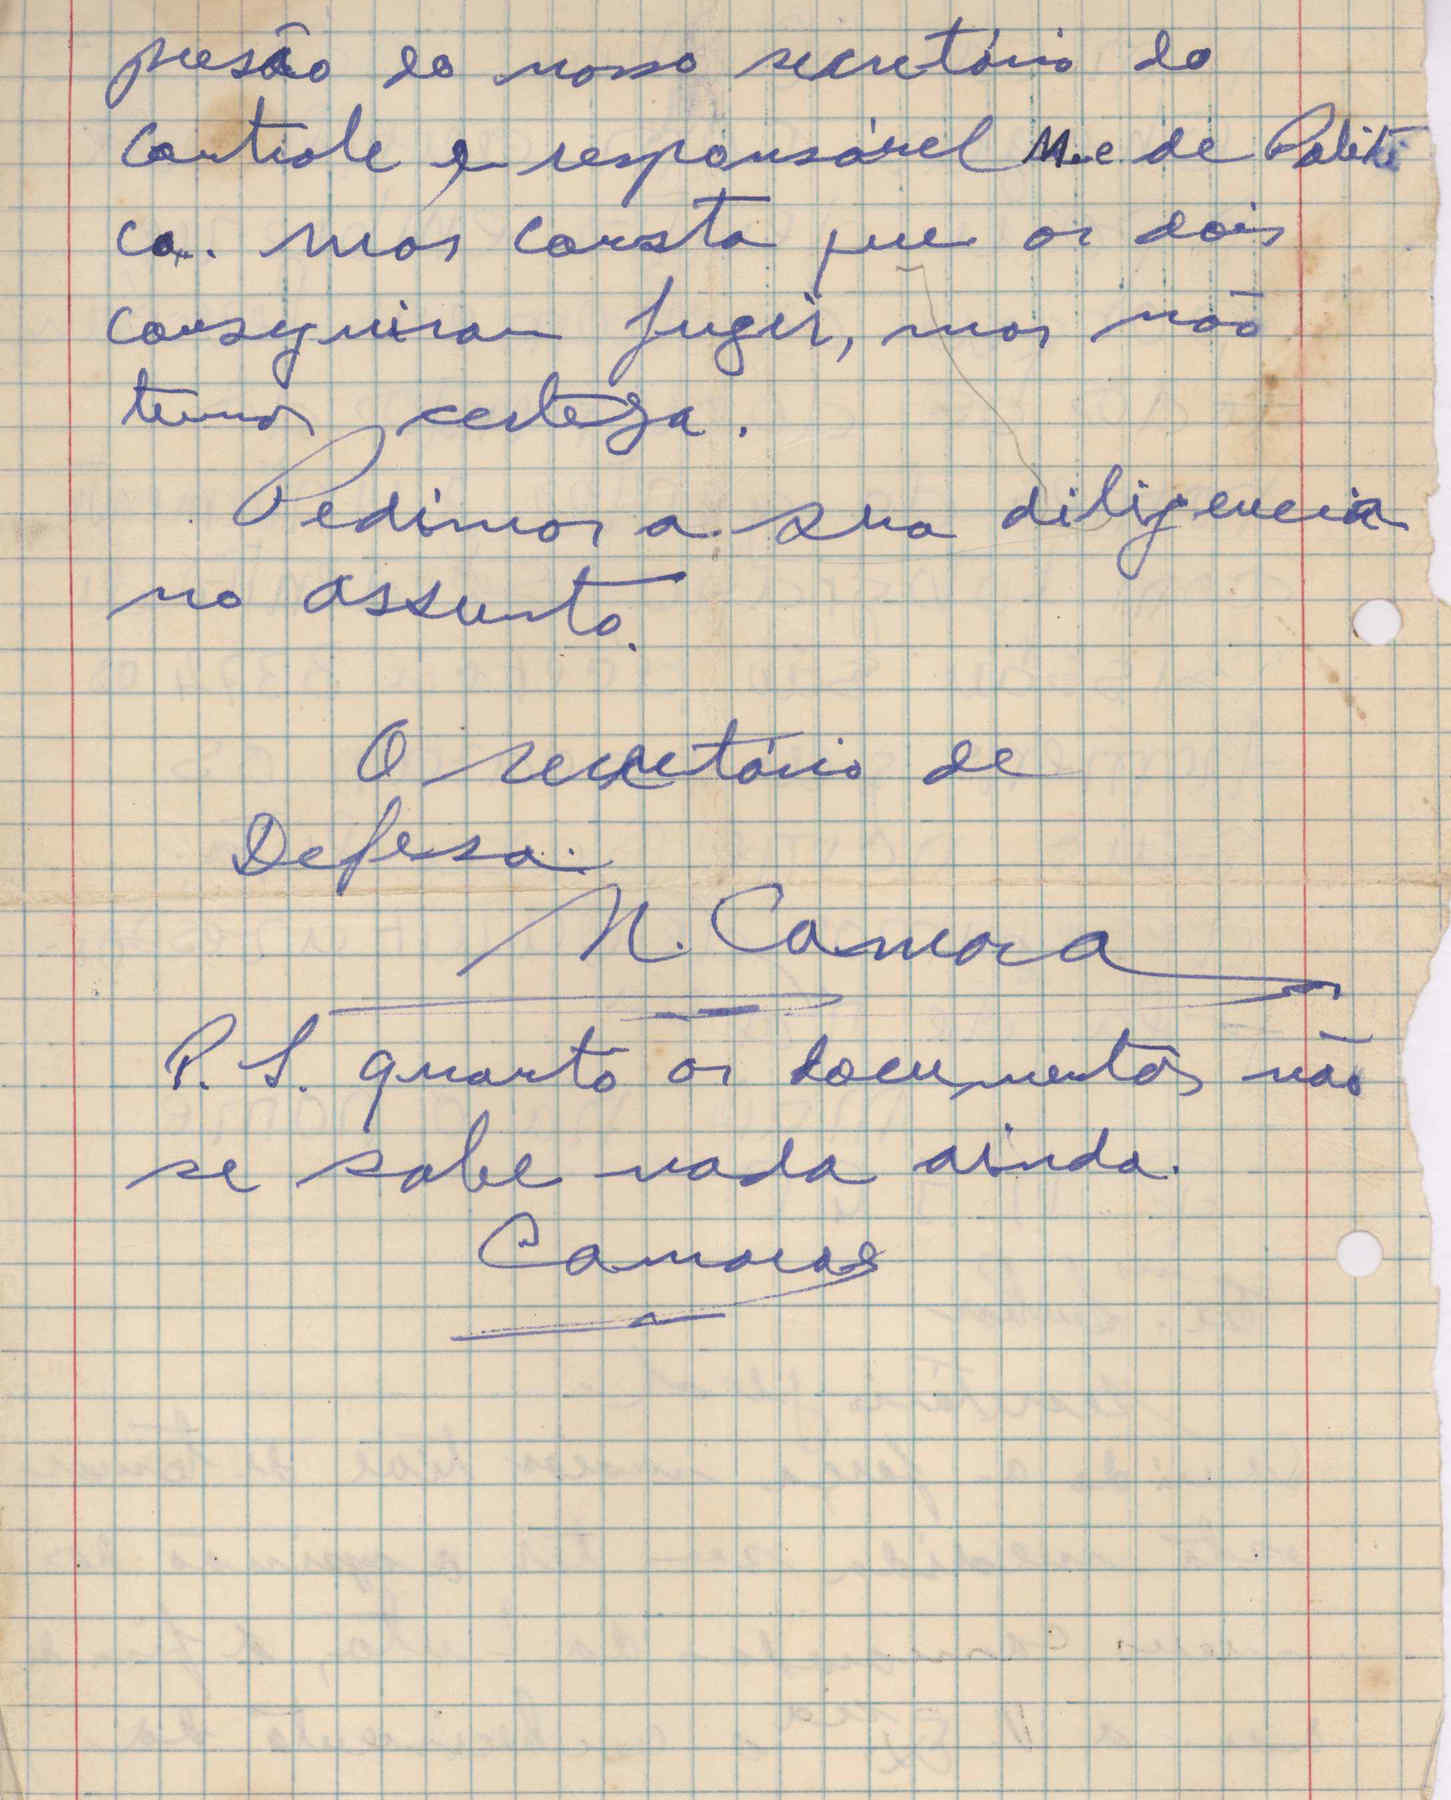 presão do nosso secretário do
Controle e responsável de Politi
ca. mas consta que os dois
conseguiram fugir, mas não
temos certeza.
Pedimos a sua diligencia
no assunto.
O secretário de
Defesa.
N. Camora
P. S. quanto os documentos não
se sabe nada ainda.
Camoras